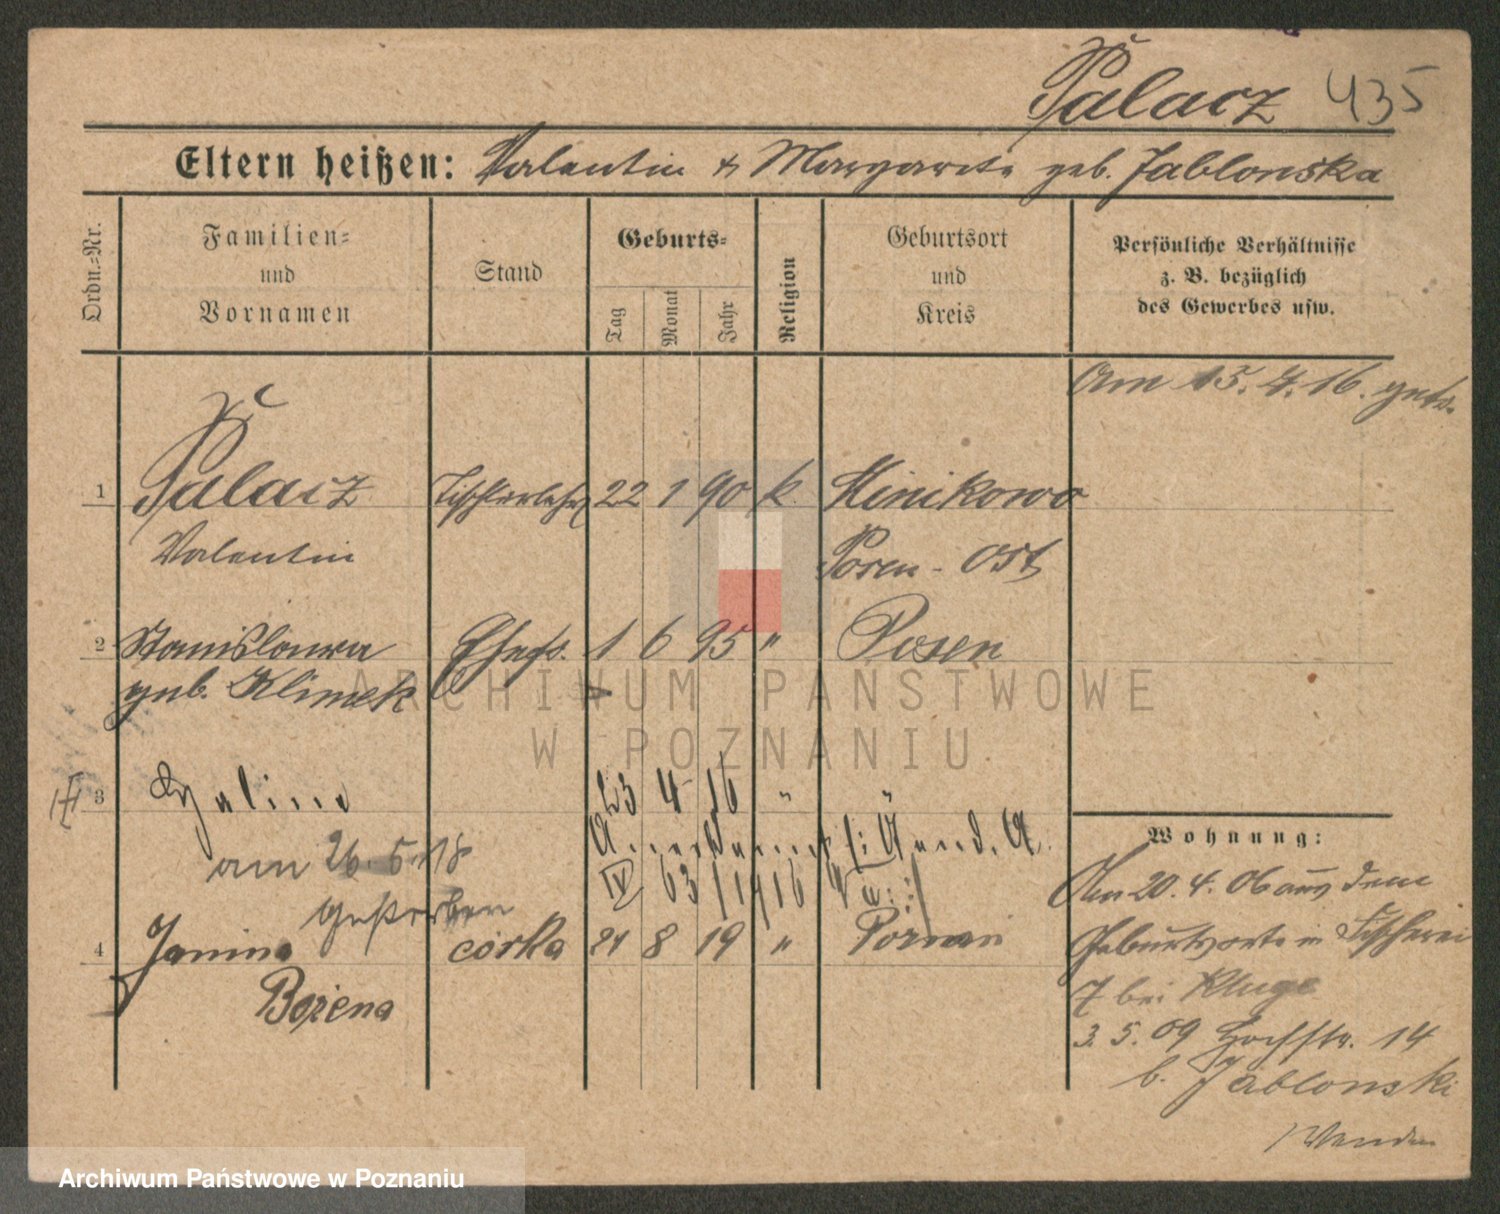 Palacz 435
Eltern heißen: Valentin & Margarete geb. Jablonska
Ordn.-Nr.
Familien-
und
Vornamen
Stand
Geburts-
Tag
Monat
Jahr
Religion
Geburtsort
und
Kreis
Persönliche Verhältnisse
z. B. bezüglich
des Gewerbes usw.
Am 15. 4. 16. getr.
1 Palacz Tischlerlehrl 22 1 90 k. Minikowo
Valentin Posen - Ost
2 Stanislawa Ehefr. 1 6 95 " Posen
geb. Klimek
ARCHIWUM PAŃSTWOWE
W POZNANIU
3 Halina 23 4 16 " "
am 26. 5. 18
gestorben
IV 63/1916
4 Janina córka 21 8 19 " Poznań
Bożena
Wohnung:
Am 20. 4. 06 aus dem
Geburtsorte in Fischerei
7 bei Kluge
3. 5. 09 Hochstr. 14
b. Jablonski
Wenden
Archiwum Państwowe w Poznaniu